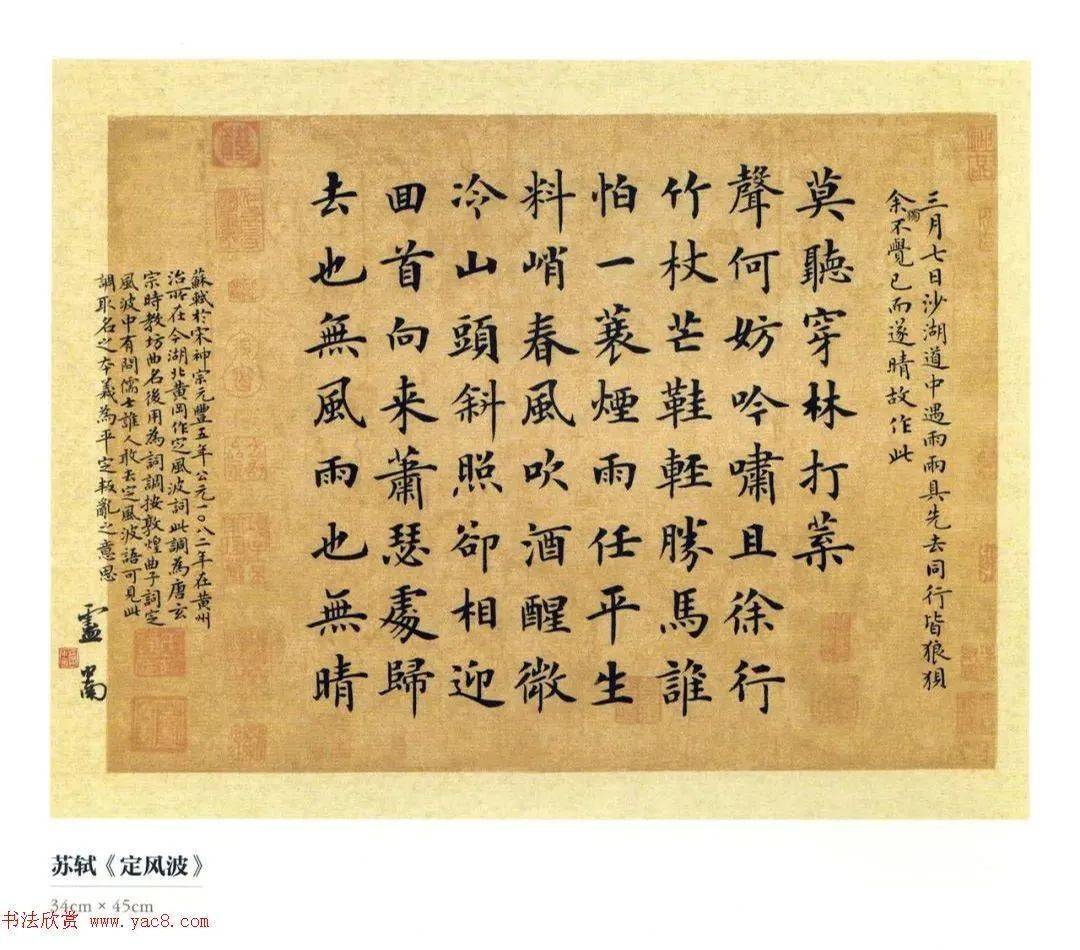 三月七日沙湖道中遇雨雨具先去同行皆狼狽
余獨不覺已而遂晴故作此
莫聽穿林打葉
聲何妨吟嘯且徐行
竹杖芒鞋輕勝馬誰
怕一蓑煙雨任平生
料峭春風吹酒醒微
冷山頭斜照卻相迎
回首向来蕭瑟處歸
去也無風雨也無晴
蘇軾於宋神宗元豐五年公元一〇八二年在黄州
治所在今湖北黄岡作定風波詞此調為唐玄
宗時教坊曲名後用為詞調按敦煌曲子詞定
風波中有問儒士誰人敢去定風波語可見此
調取名之本義為平定叛亂之意思
苏轼《定风波》
34cm × 45cm
书法欣赏 www.yac8.com